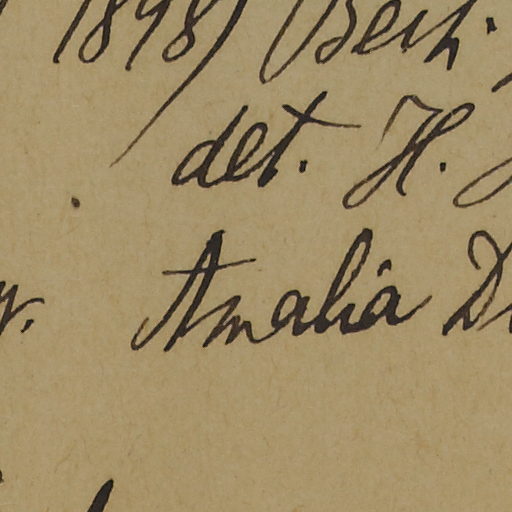 1898) (Beih.
det. H.
Amalia D